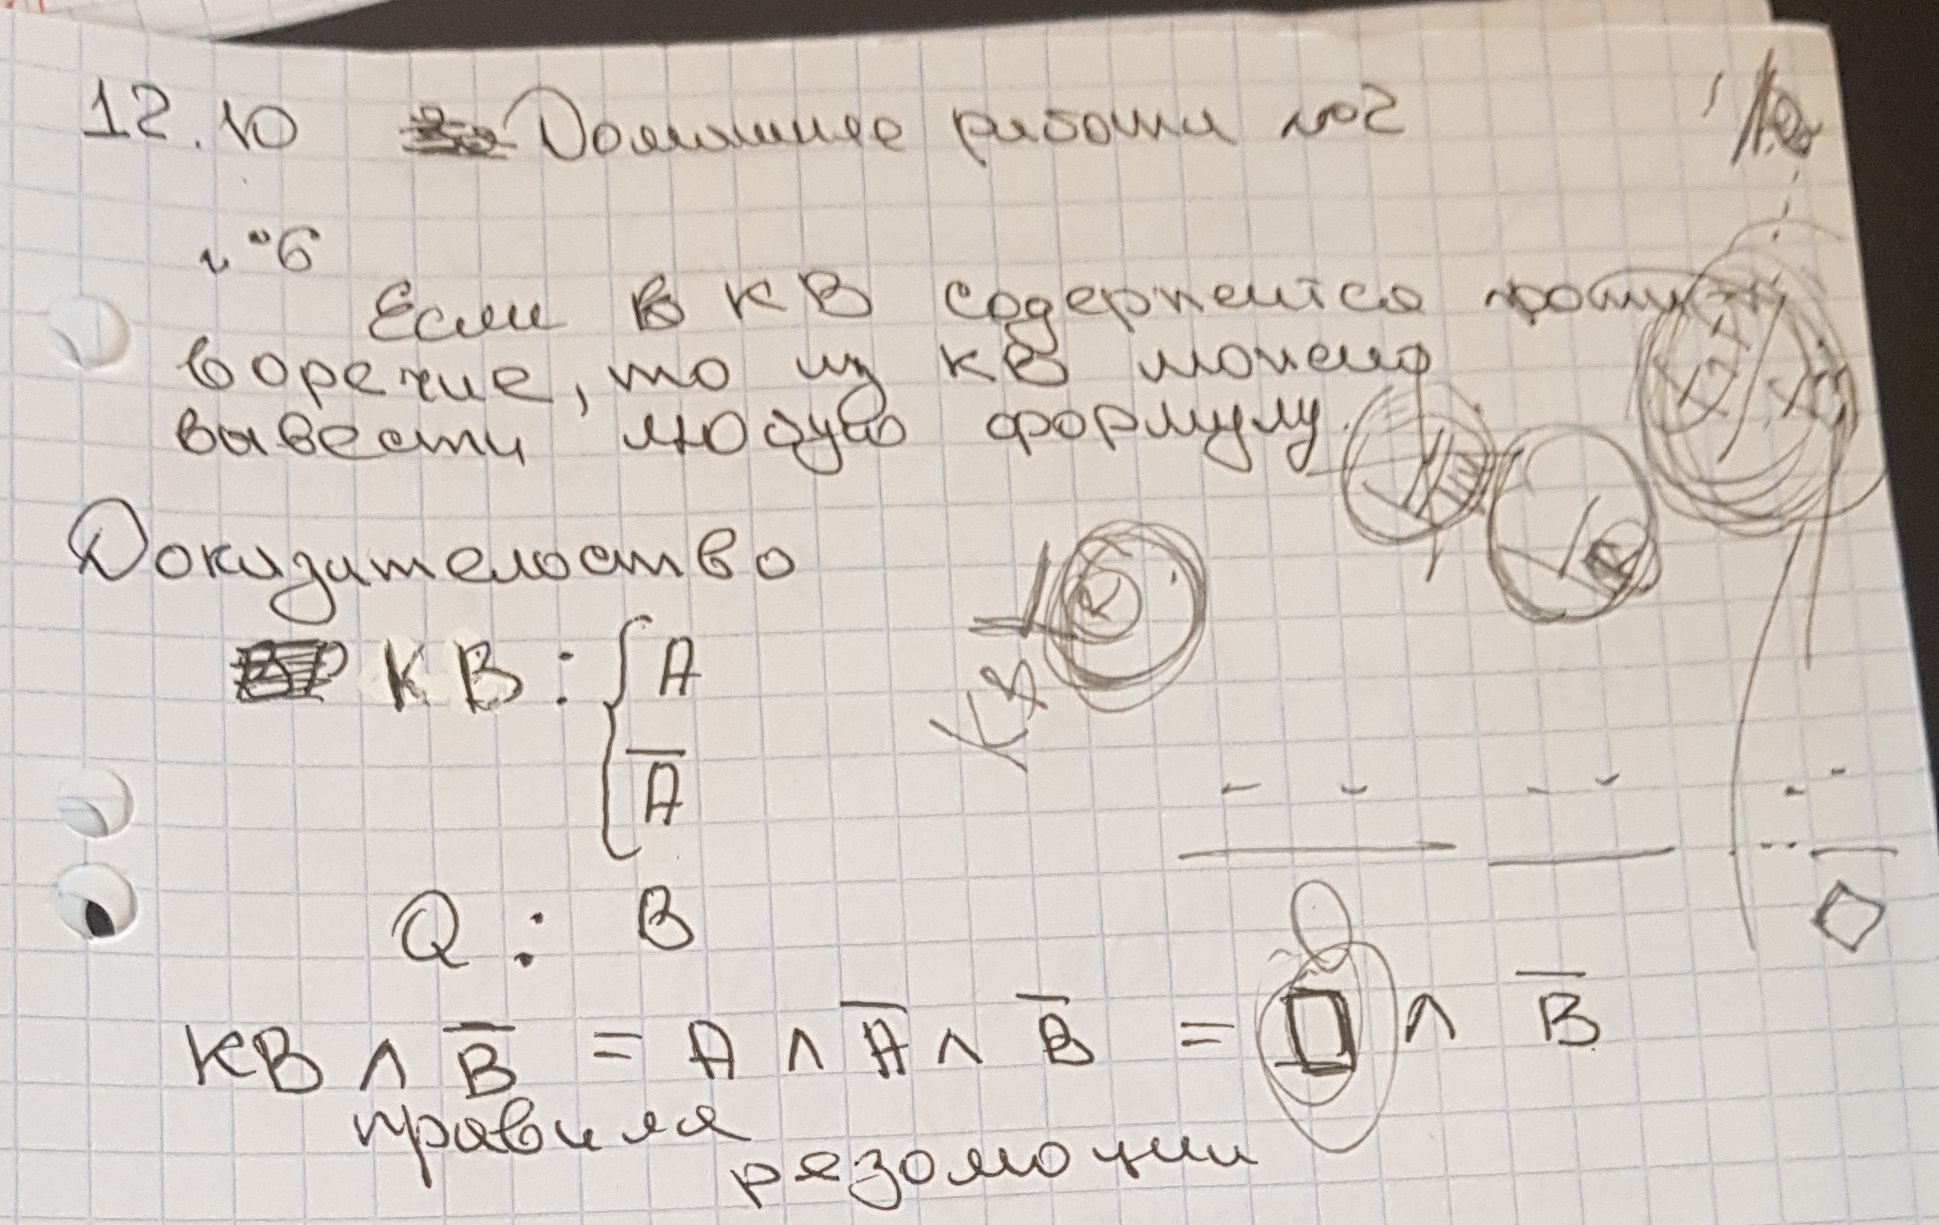 12.10 Домашняя работа №2
№6
Если в KB содержится проти
воречие, то из KB можно
вывести любую формулу.
Доказательство
KB : { A
A̅
KB
Q : B
KB ∧ B̅ = A ∧ A̅ ∧ B̅ = □ ∧ B̅
правила
резолюции